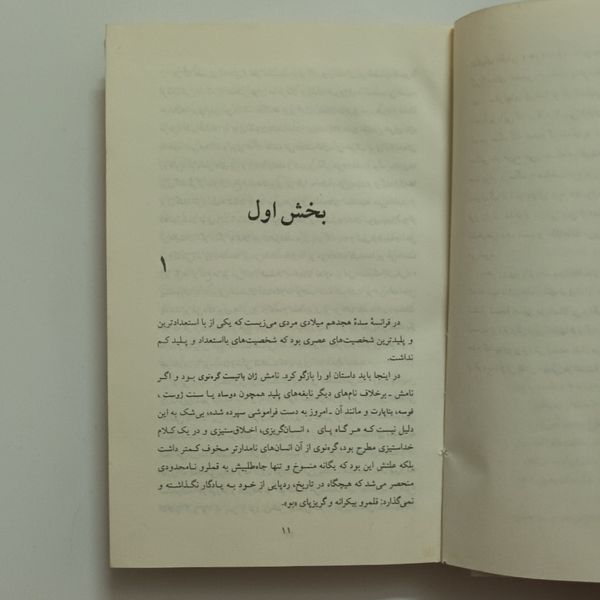 بخش اول
۱
در فرانسهٔ سدهٔ هجدهم میلادی مردی می‌زیست که یکی از با استعدادترین
و پلیدترین شخصیت‌های عصری بود که شخصیت‌های بااستعداد و پلید کم
نداشت.
در اینجا باید داستان او را بازگو کرد. نامش ژان باتیست گرنوی بود و اگر
نامش ـ برخلاف نام‌های دیگر نابغه‌های پلید همچون دوساد یا سنت ژوست،
فوسه، بناپارت و مانند آن ـ امروز به دست فراموشی سپرده شده، بی‌شک به این
دلیل نیست که هر گاه پای ، انسان‌گریزی، اخلاق‌ستیزی و در یک کلام
خداستیزی مطرح بود، گره‌نوی از آن انسان‌های نامدارتر مخوف کمتر داشت
بلکه علتش این بود که یگانه منسوخ و تنها جاه‌طلبیش به قملرو نامحدودی
منحصر می‌شد که هیچگاه در تاریخ، ردپایی از خود به یادگار نگذاشته و
نمی‌گذارد: قلمرو بیکرانه و گریزپای «بو».
۱۱